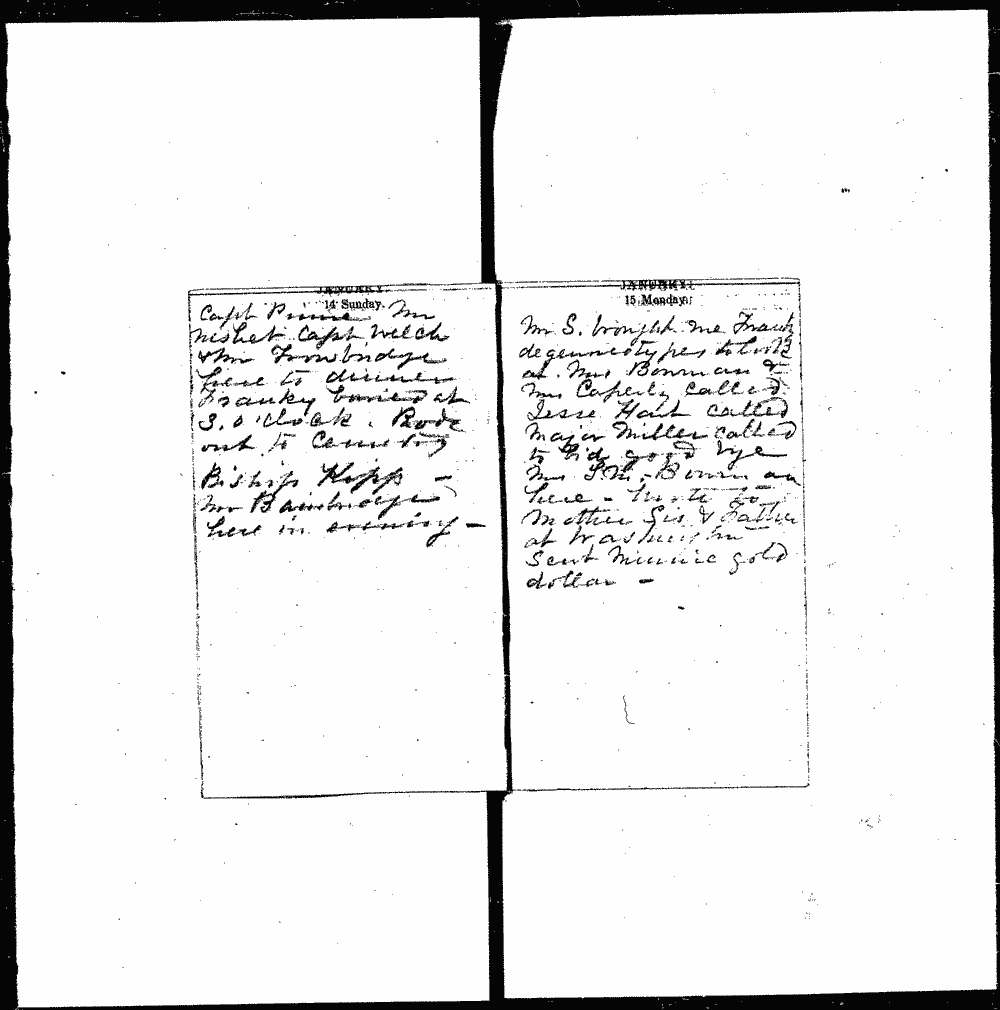 JANUARY
14 Sunday.
Capt Prime Mr
Nisbet Capt Welch
& Mr Trowbridge
here to dinner
Franky buried at
3. o'clock. Rode
out to Cemetery
Bishop Kipp -
Mr Bainbridge
here in evening -
JANUARY
15 Monday.
Mr S. brought me Frank
degenneotypes to look
at. Mrs Bowman &
Mrs Caperly called
Jesse Hart called
Major Miller called
to bid good bye
Mrs I M. Bowman
here - Wrote to
Mother Sis & Father
at Washington
Sent Minnie gold
dollar -